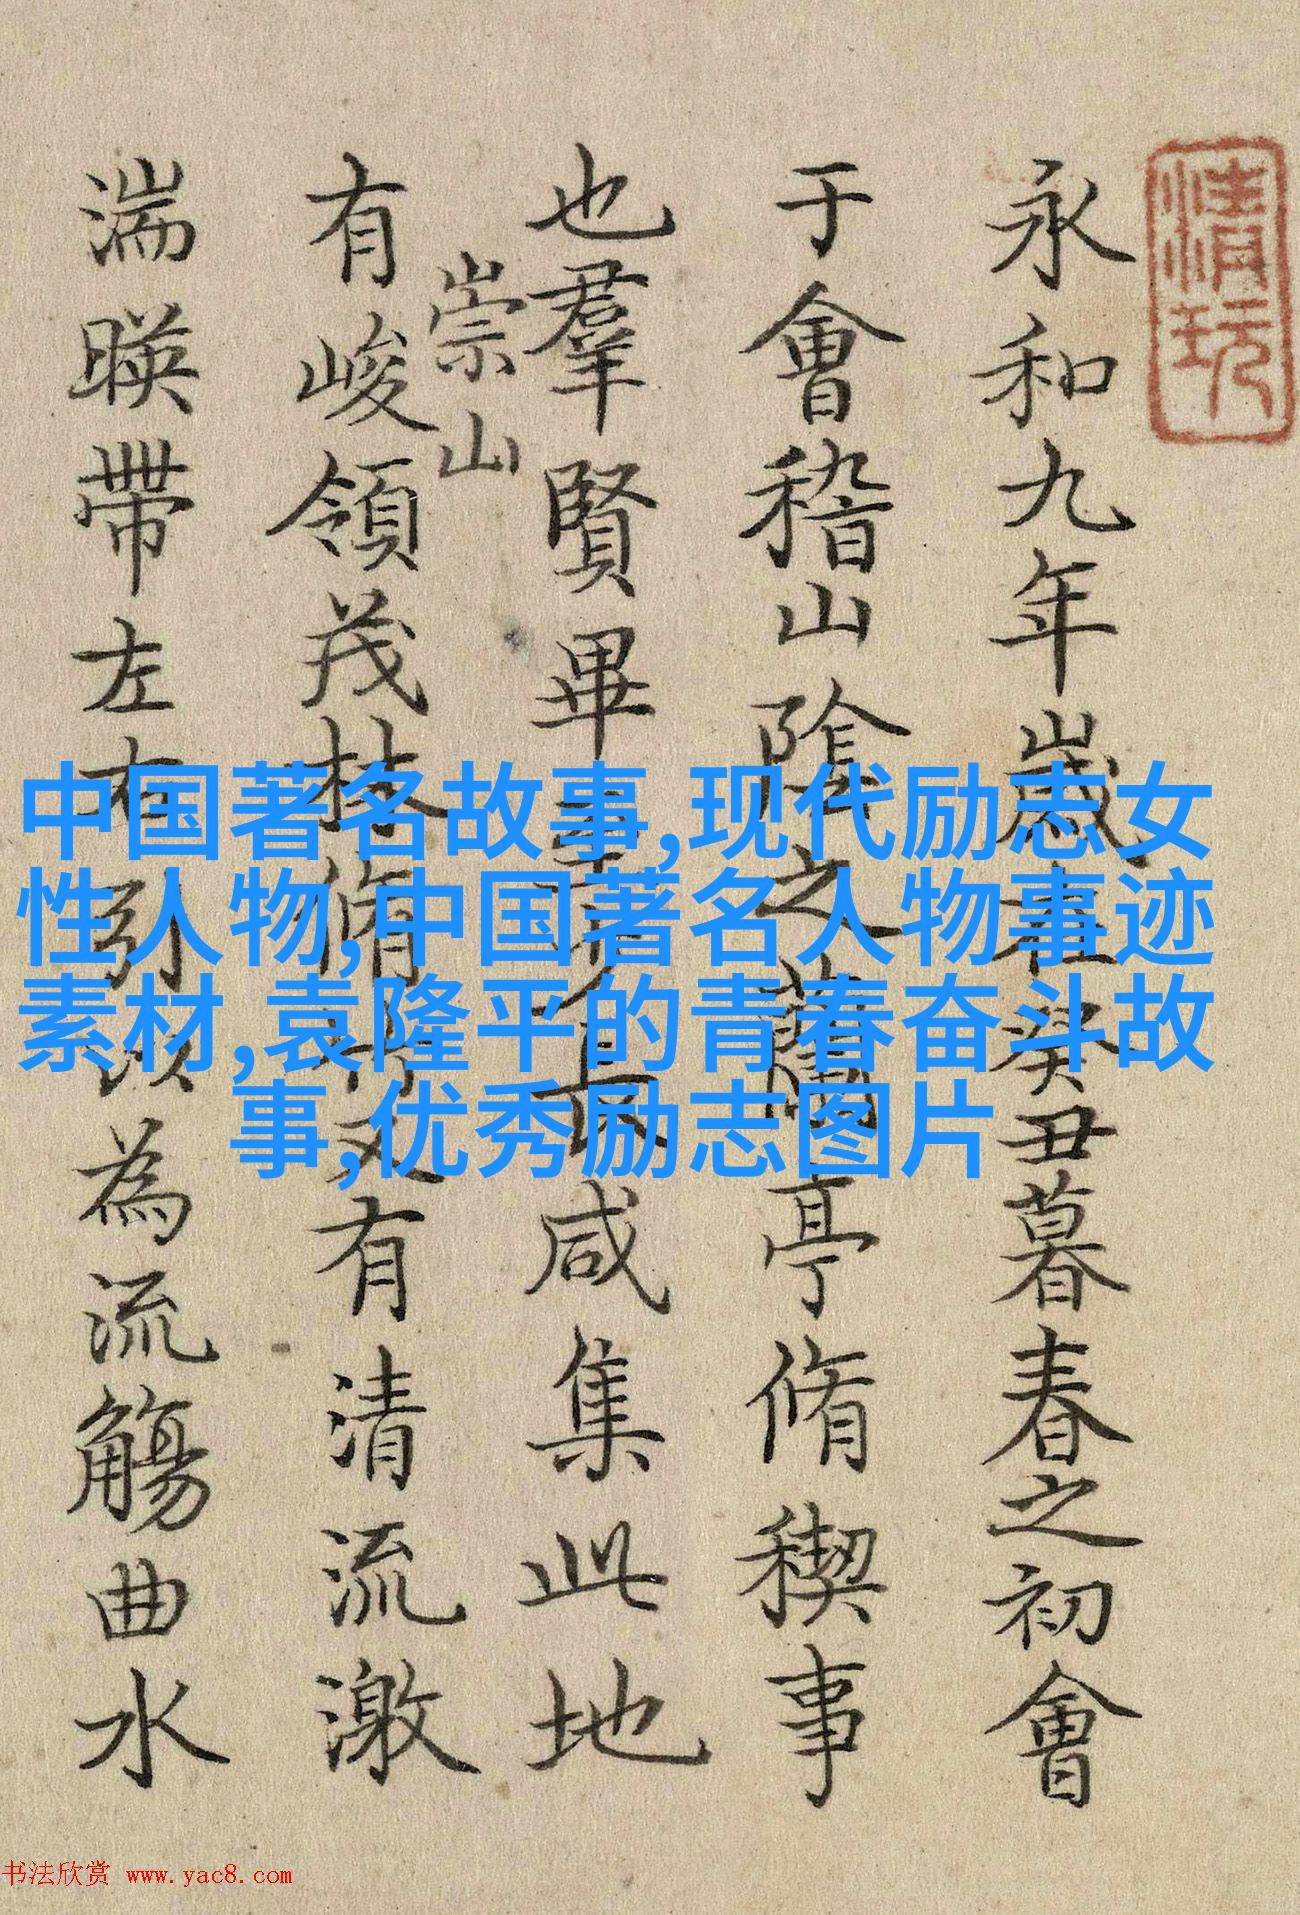 清玩
永和九年歲在癸丑暮春之初會
于會稽山陰之蘭亭脩稧事
也羣賢畢至少長咸集此地
崇山
有峻領茂林脩竹又有清流激
湍暎帶左右引以為流觴曲水
中国著名故事,现代励志女
性人物,中国著名人物事迹
素材,袁隆平的青春奋斗故
事,优秀励志图片
书法欣赏 www.yac8.com